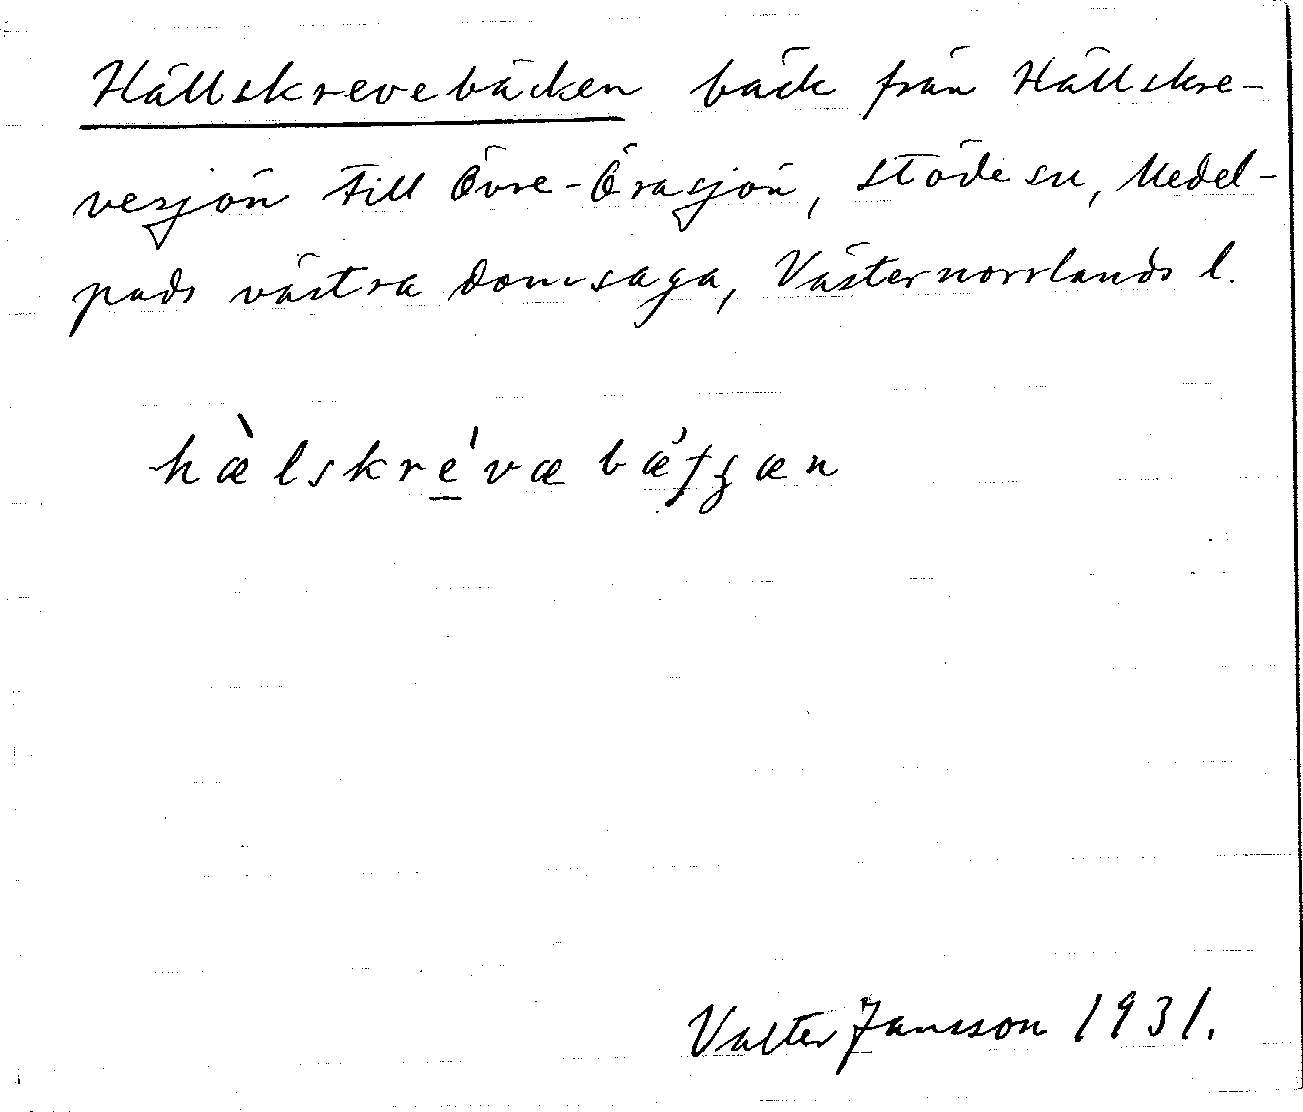 Hällskrevebäcken bäck från Hällskre-
vesjön till Övre-Örasjön, Stöde sn, Medel-
pads västra domsaga, Västernorrlands l.
hæ̀lskre̲̍væbæ̍ʃʒæn
Valter Jansson 1931.